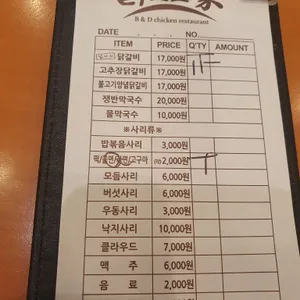 B & D chicken restaurant
DATE . . . NO.
ITEM PRICE Q'TY AMOUNT
닭갈비 17,000원
고추장닭갈비 17,000원
불고기양념닭갈비 17,000원
쟁반막국수 20,000원
물막국수 10,000원
※사리류※
밥볶음사리 3,000원
떡/쫄면/라면/고구마 2,000원
모듬사리 6,000원
버섯사리 6,000원
우동사리 3,000원
낙지사리 10,000원
클라우드 7,000원
맥 주 6,000원
음 료 2,000원